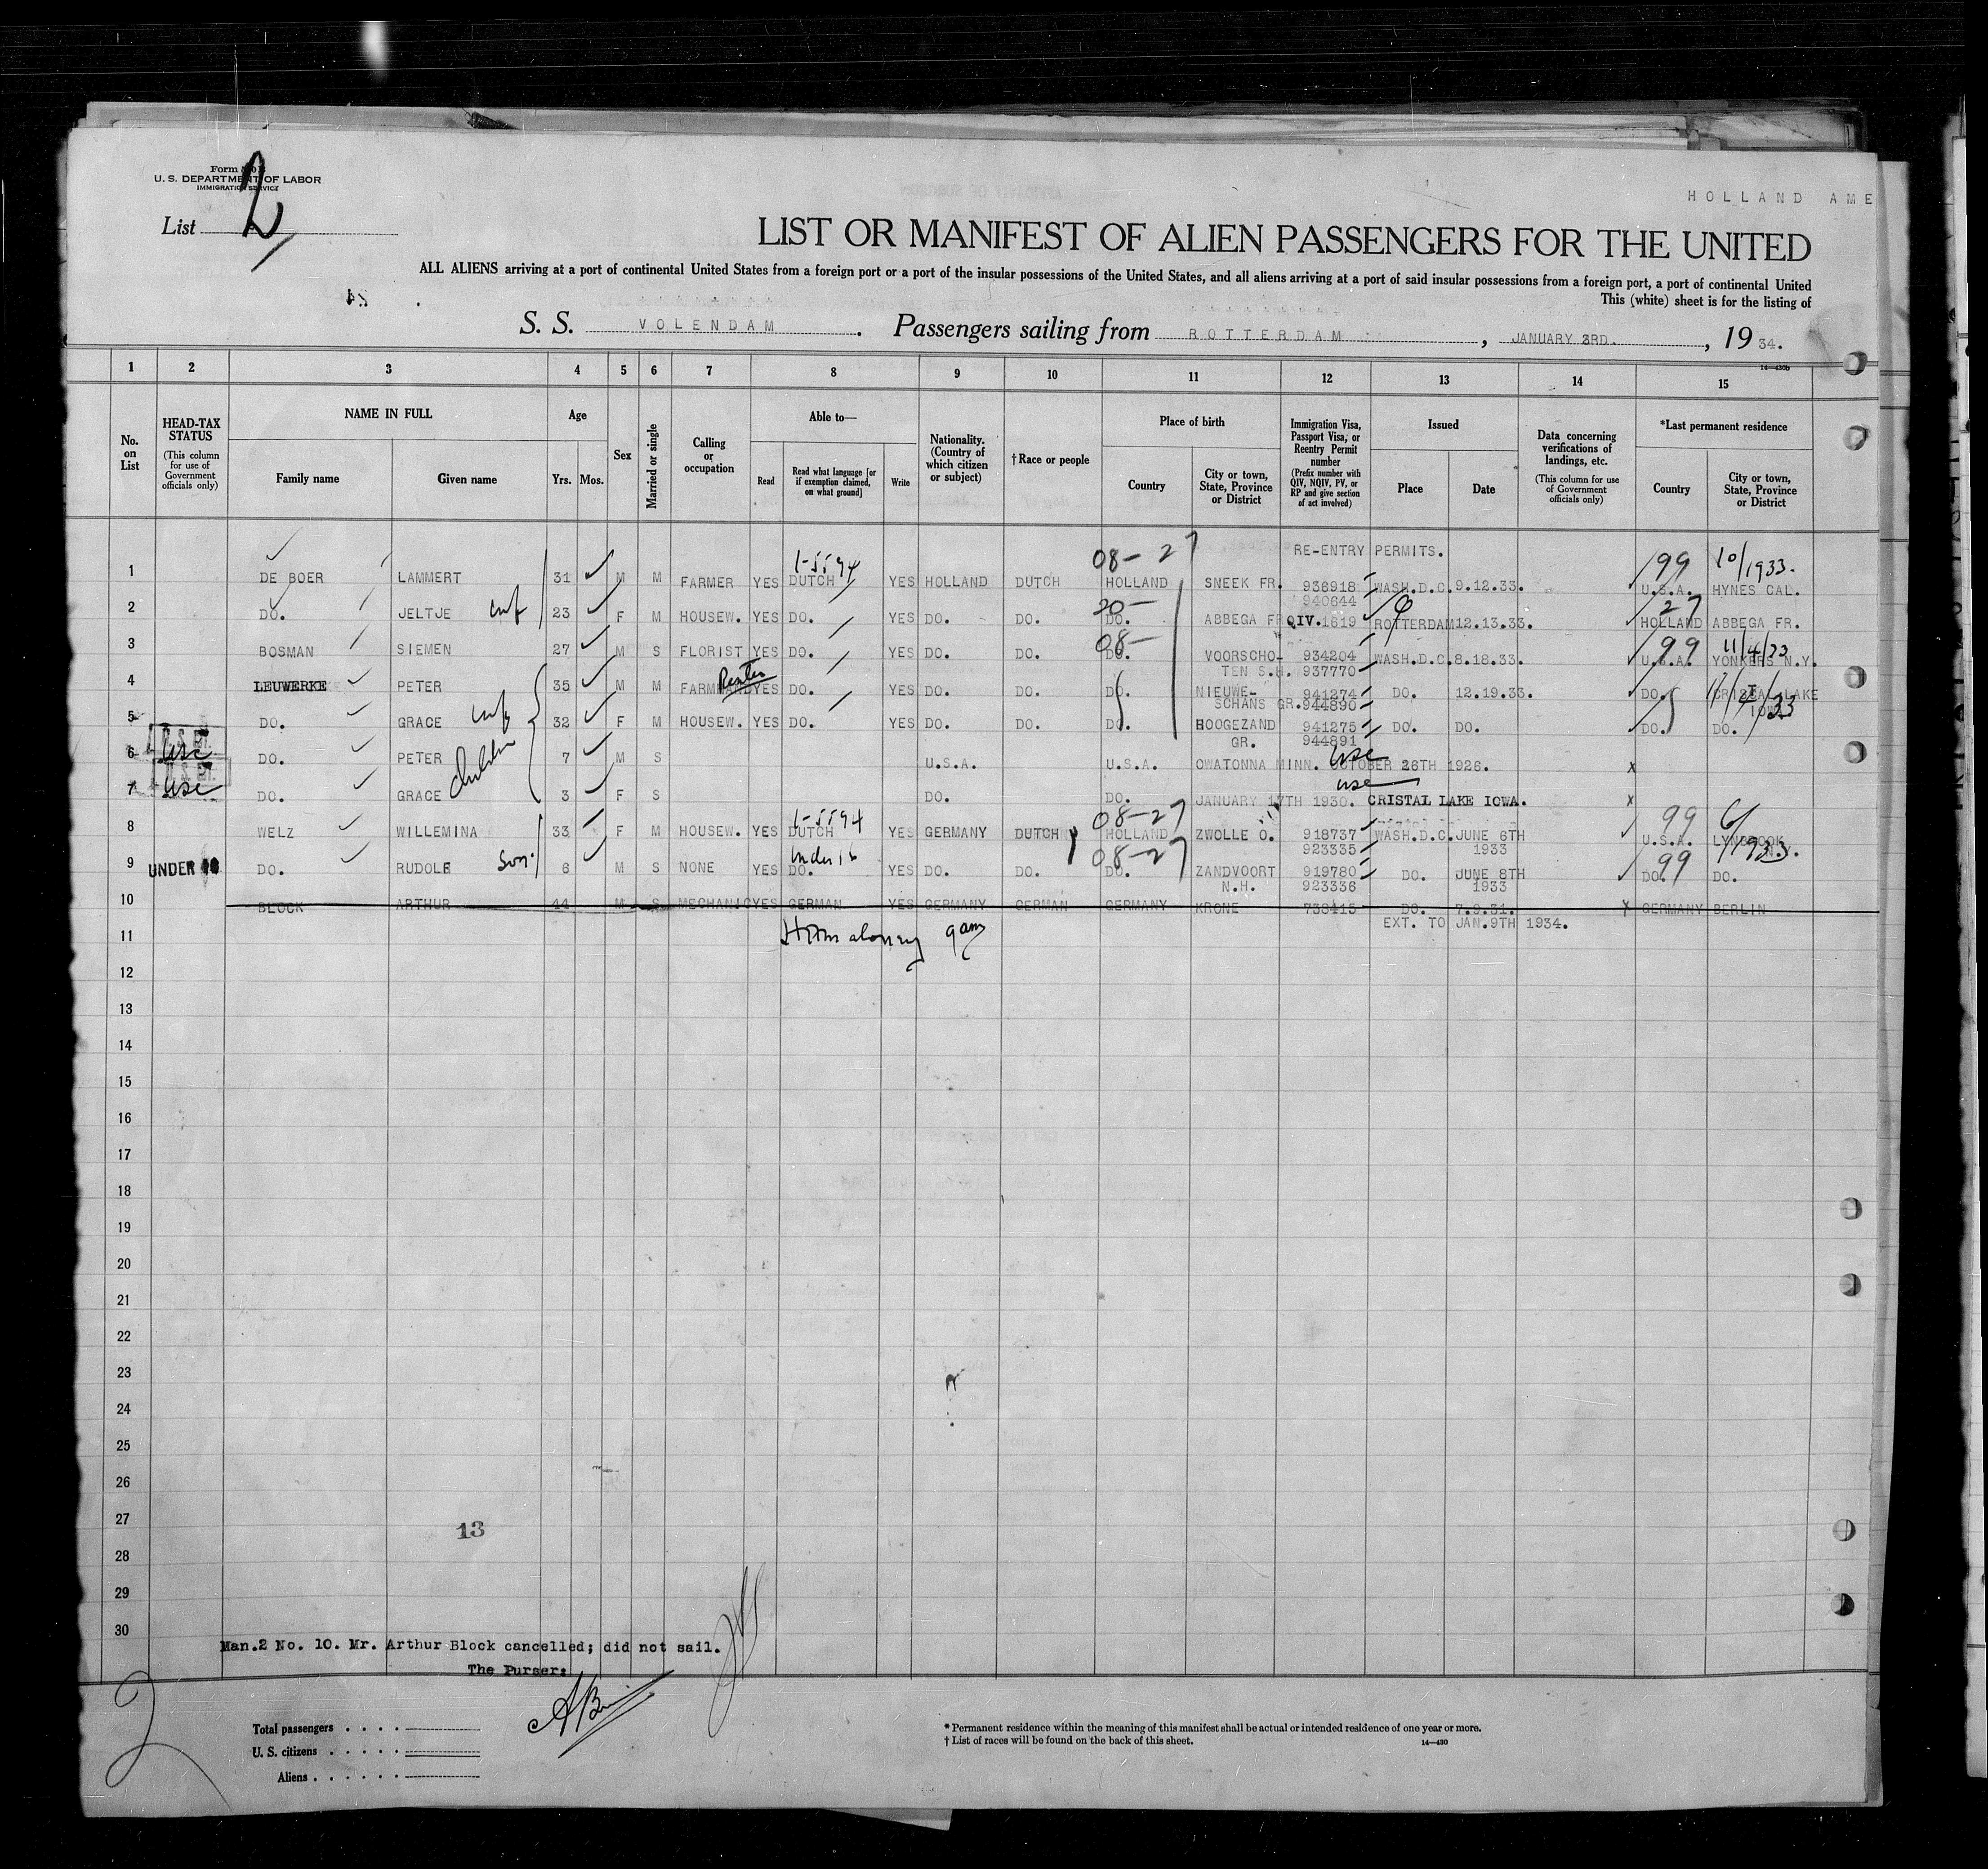 Form
U. S. DEPARTMENT OF LABOR
IMMIGRATION SERVICE
HOLLAND AME
List 2
LIST OR MANIFEST OF ALIEN PASSENGERS FOR THE UNITED
ALL ALIENS arriving at a port of continental United States from a foreign port or a port of the insular possessions of the United States, and all aliens arriving at a port of said insular possessions from a foreign port, a port of continental United
This (white) sheet is for the listing of
S. S. VOLENDAM. Passengers sailing from ROTTERDAM, JANUARY 3RD., 19 34.
14—430b
1 2 3 4 5 6 7 8 9 10 11 12 13 14 15
No. on List
HEAD-TAX STATUS (This column for use of Government officials only)
NAME IN FULL
Family name Given name
Age
Yrs. Mos.
Sex
Married or single
Calling or occupation
Able to—
Read Read what language [or if exemption claimed, on what ground] Write
Nationality. (Country of which citizen or subject)
†Race or people
Place of birth
Country City or town, State, Province or District
Immigration Visa, Passport Visa, or Reentry Permit number (Prefix number with QIV, NQIV, PV, or RP and give section of act involved)
Issued
Place Date
Data concerning verifications of landings, etc. (This column for use of Government officials only)
*Last permanent residence
Country City or town, State, Province or District
1-5594 08-27 RE-ENTRY PERMITS. 99 10/1933.
1 DE BOER LAMMERT 31 M M FARMER YES DUTCH YES HOLLAND DUTCH HOLLAND SNEEK FR. 936918 WASH.D.C. 9.12.33. U.S.A. HYNES CAL.
940644
20- 27
2 DO. JELTJE wife 23 F M HOUSEW. YES DO. YES DO. DO. DO. ABBEGA FR QIV.1619 ROTTERDAM 12.13.33. HOLLAND ABBEGA FR.
08- 99 11/4/33
3 BOSMAN SIEMEN 27 M S FLORIST YES DO. YES DO. DO. DO. VOORSCHO- 934204 WASH.D.C. 8.18.33. U.S.A. YONKERS N.Y.
TEN S.H. 937770
4 LEUWERKE PETER 35 M M YES DO. YES DO. DO. DO. NIEUWE- 941274 DO. 12.19.33. DO. LAKE
SCHANS GR. 944890
5 DO. GRACE wife 32 F M HOUSEW. YES DO. YES DO. DO. DO. HOOGEZAND 941275 DO. DO. DO. DO.
GR. 944891
6 USC DO. PETER children 7 M S U.S.A. U.S.A. OWATONNA MINN. OCTOBER 26TH 1926. X
USC
USC
7 USC DO. GRACE 3 F S DO. DO. JANUARY 17TH 1930. CRISTAL LAKE IOWA. X
1-5594 08-27 99
8 WELZ WILLEMINA 33 F M HOUSEW. YES DUTCH YES GERMANY DUTCH HOLLAND ZWOLLE O. 918737 WASH.D.C. JUNE 6TH U.S.A. LYNBROOK
923335 1933
Under 16 08-27 99
9 UNDER DO. RUDOLF Son. 6 M S NONE YES DO. YES DO. DO. DO. ZANDVOORT 919780 DO. JUNE 8TH DO. DO.
N.H. 923336 1933
10 BLOCK ARTHUR 44 M S MECHANIC YES GERMAN YES GERMANY GERMAN GERMANY KRONE 738415 DO. 7.9.31. X GERMANY BERLIN
EXT. TO JAN.9TH 1934.
11
12
13
14
15
16
17
18
19
20
21
22
23
24
25
26
27
13
28
29
30
Man.2 No. 10. Mr. Arthur Block cancelled; did not sail.
The Purser:
2
Total passengers
U. S. citizens
Aliens
* Permanent residence within the meaning of this manifest shall be actual or intended residence of one year or more.
† List of races will be found on the back of this sheet. 14—430